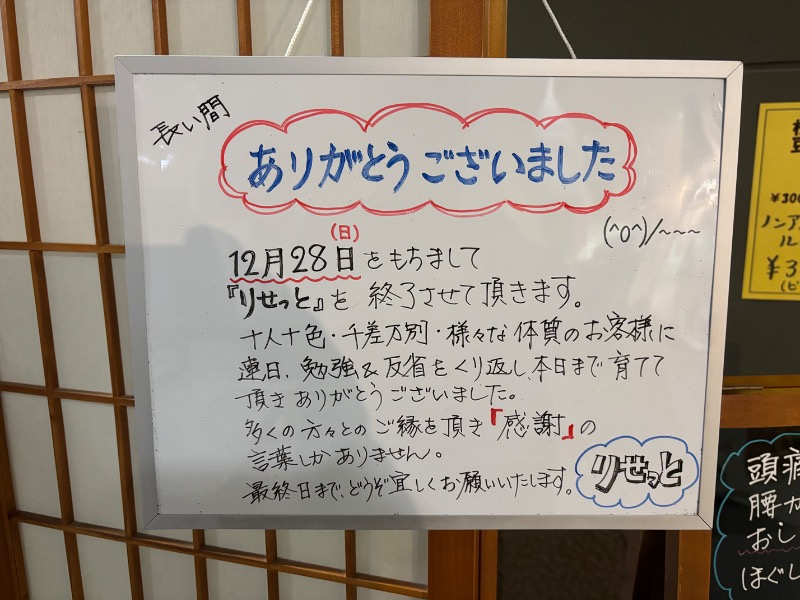 長い間
ありがとうございました
(^o^)/~~~
(日)
12月28日をもちまして
『りせっと』を 終了させて頂きます。
十人十色・千差万別・様々な体質のお客様に
連日、勉強&反省をくり返し、本日まで育てて
頂きありがとうございました。
多くの方々とのご縁を頂き『感謝』の
言葉しかありません。
最終日まで、どうぞ宜しくお願いいたします。
りせっと
ノンア
ル
頭痛
腰か
おし
ほぐし